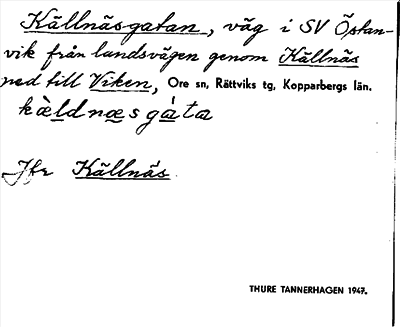 Källnäsgatan, väg i SV Östan-
vik från landsvägen genom Källnäs
ned till Viken, Ore sn, Rättviks tg, Kopparbergs län.
kæ̀ldnæsgáta
Jfr Källnäs.
THURE TANNERHAGEN 1947.